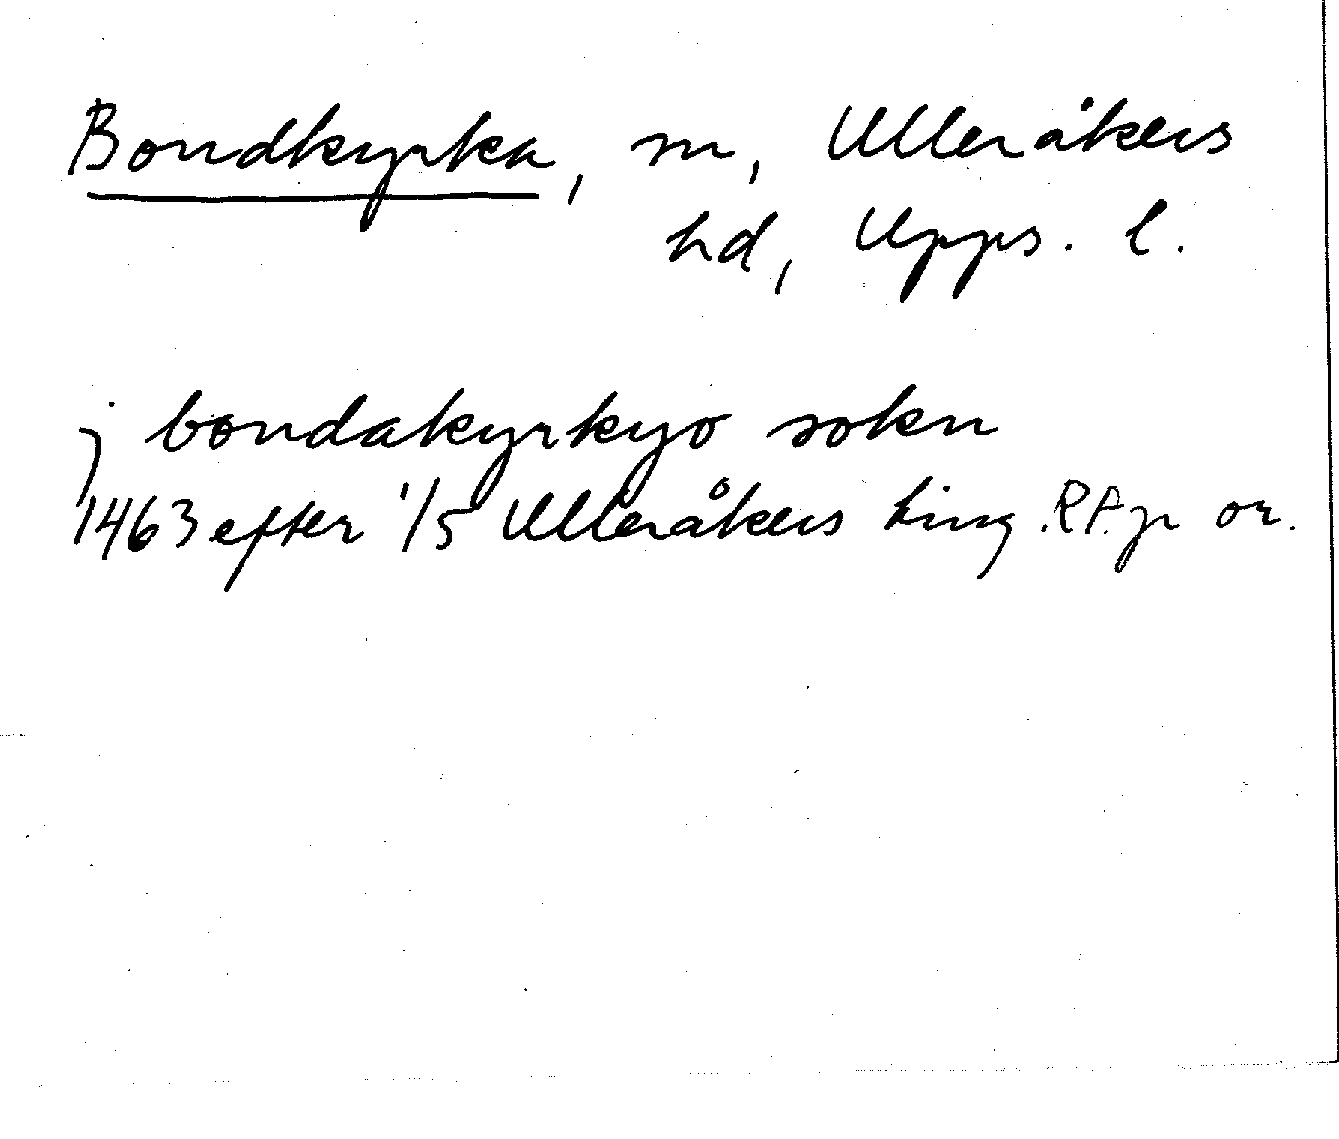 Bondkyrka, sn, Ulleråkers
hd, Upps. l.
j bondakyrkyo sokn
1463 efter 1/5 Ulleråkers ting. RA.p or.